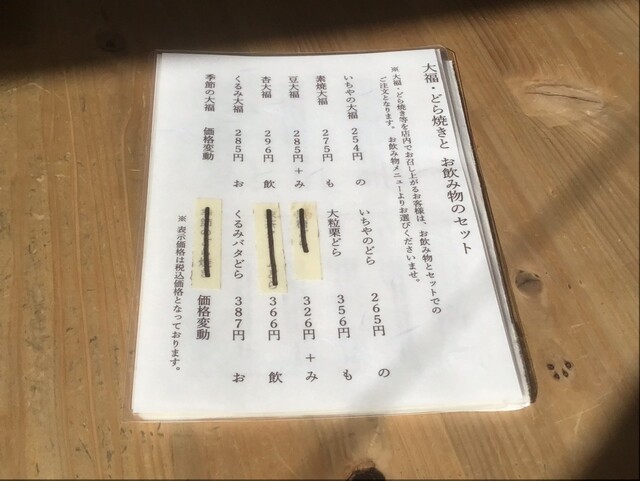 大福・どら焼きと お飲み物のセット
※ 大福・どら焼き等を店内でお召し上がるお客様は、お飲み物とセットでの
ご注文となります。 お飲み物メニューよりお選びくださいませ。
いちやの大福 254円 の
素焼大福 275円 も
豆大福 285円 + み
杏大福 296円 飲
くるみ大福 285円 お
季節の大福 価格変動
いちやのどら 265円 の
大粒栗どら 356円 も
326円 + み
366円 飲
くるみバタどら 387円 お
価格変動
※ 表示価格は税込価格となっております。